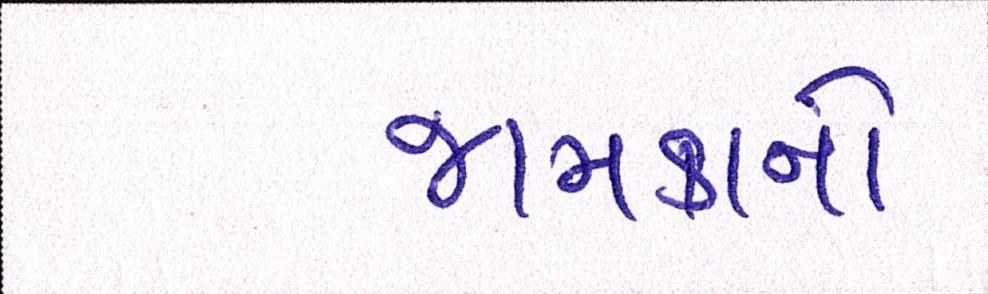 જામકાનો